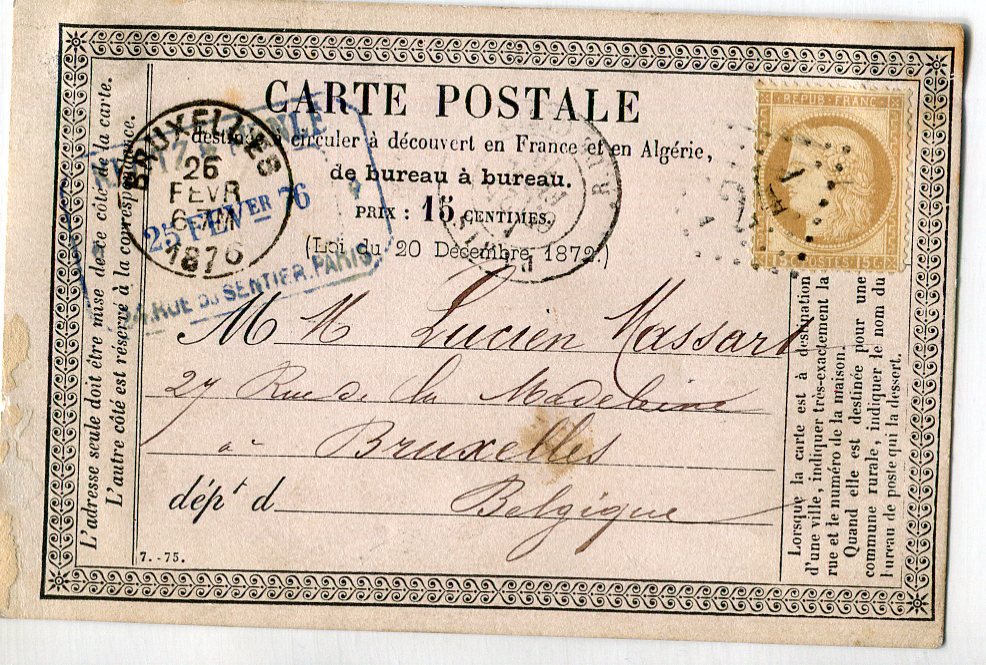 CARTE POSTALE
destinée à circuler à découvert en France et en Algérie,
de bureau à bureau.
PRIX : 15 CENTIMES.
(Loi du 20 Décembre 1872.)
BRUXELLES
26
FEVR
1876
25 FEVER 76
24, RUE DU SENTIER, PARIS
REPUB FRANC
15 C POSTES 15 C
M M Lucien Massart
27 Rue de la Madeleine
à Bruxelles
dépt d Belgique
7.-75.
L'adresse seule doit être mise de ce côté de la carte.
L'autre côté est réservé à la correspondance.
Lorsque la carte est à destination
d'une ville, indiquer très-exactement la
rue et le numéro de la maison.
Quand elle est destinée pour une
commune rurale, indiquer le nom du
bureau de poste qui la dessert.